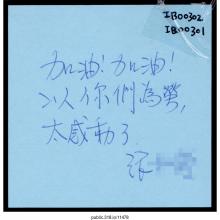 IB00302
IB00301
加油!加油!
以人你們為榮,
太感動了
張
public.318.io/11478